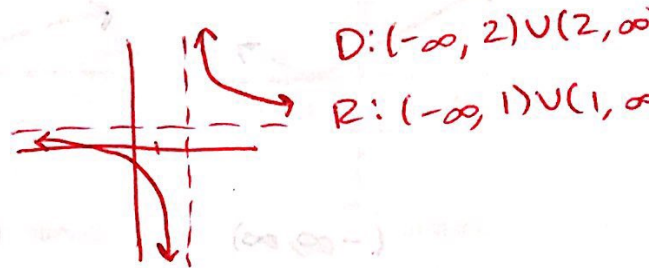 D: (-∞, 2)∪(2, ∞
R: (-∞, 1)∪(1, ∞